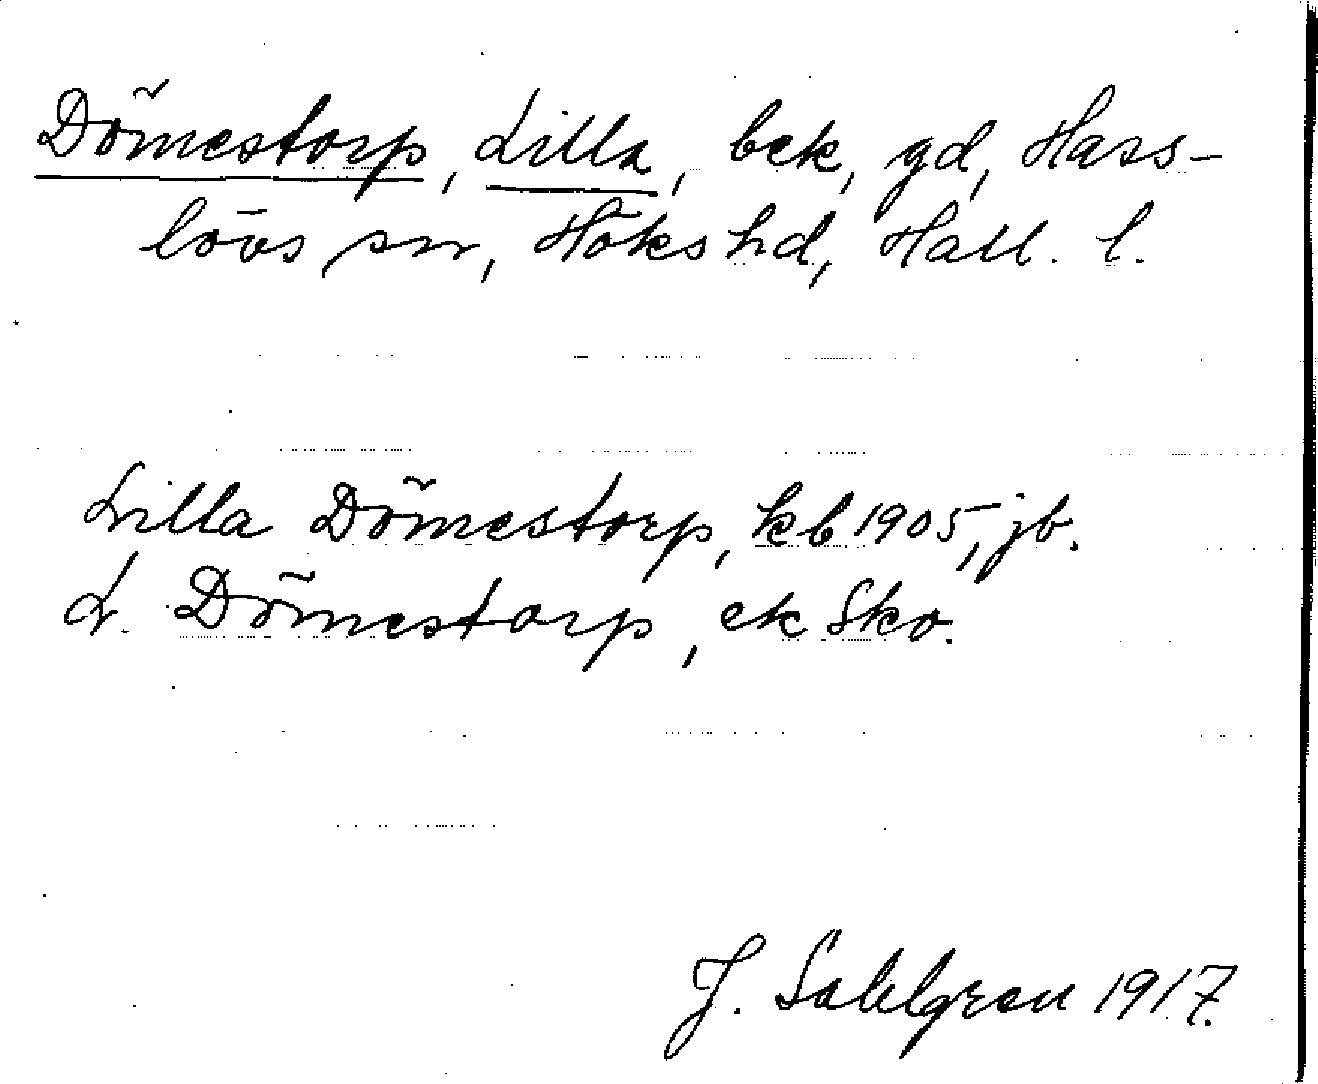 Dömestorp, Lilla, bek, gd, Hass-
lövs sn, Höks hd, Hall. l.
Lilla Dömestorp, kb 1905, jb.
L. Dömestorp, ek Sko.
J. Sahlgren 1917.